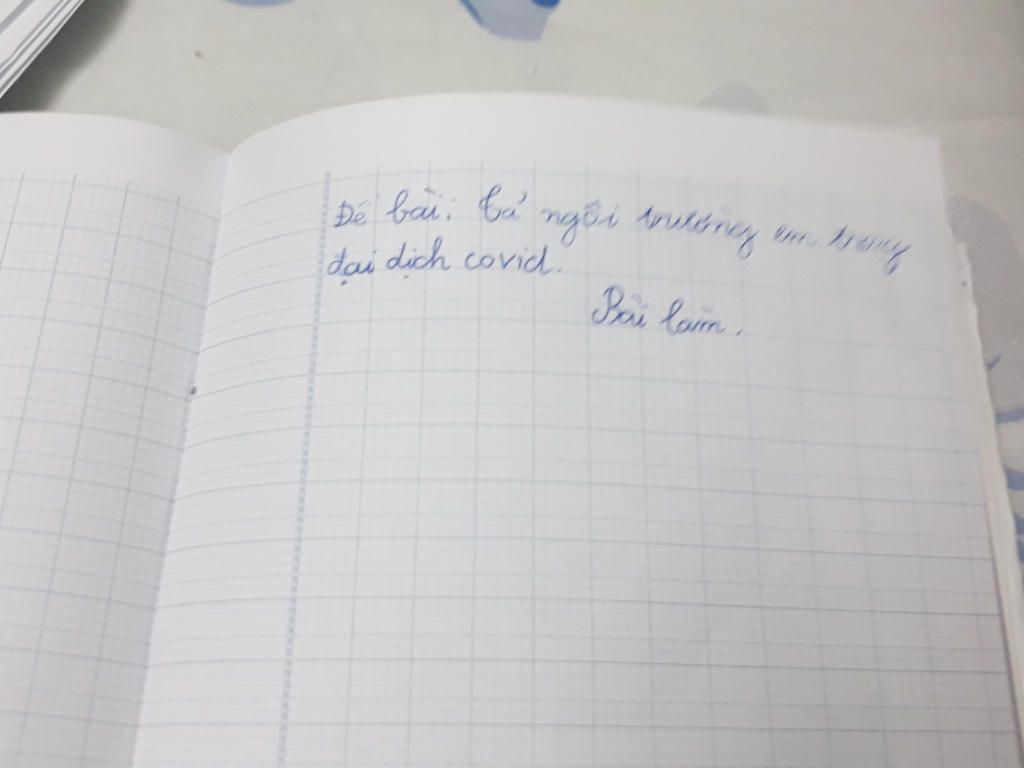 Đề bài: Tả ngôi trường em trong
đại dịch covid.
Bài làm.